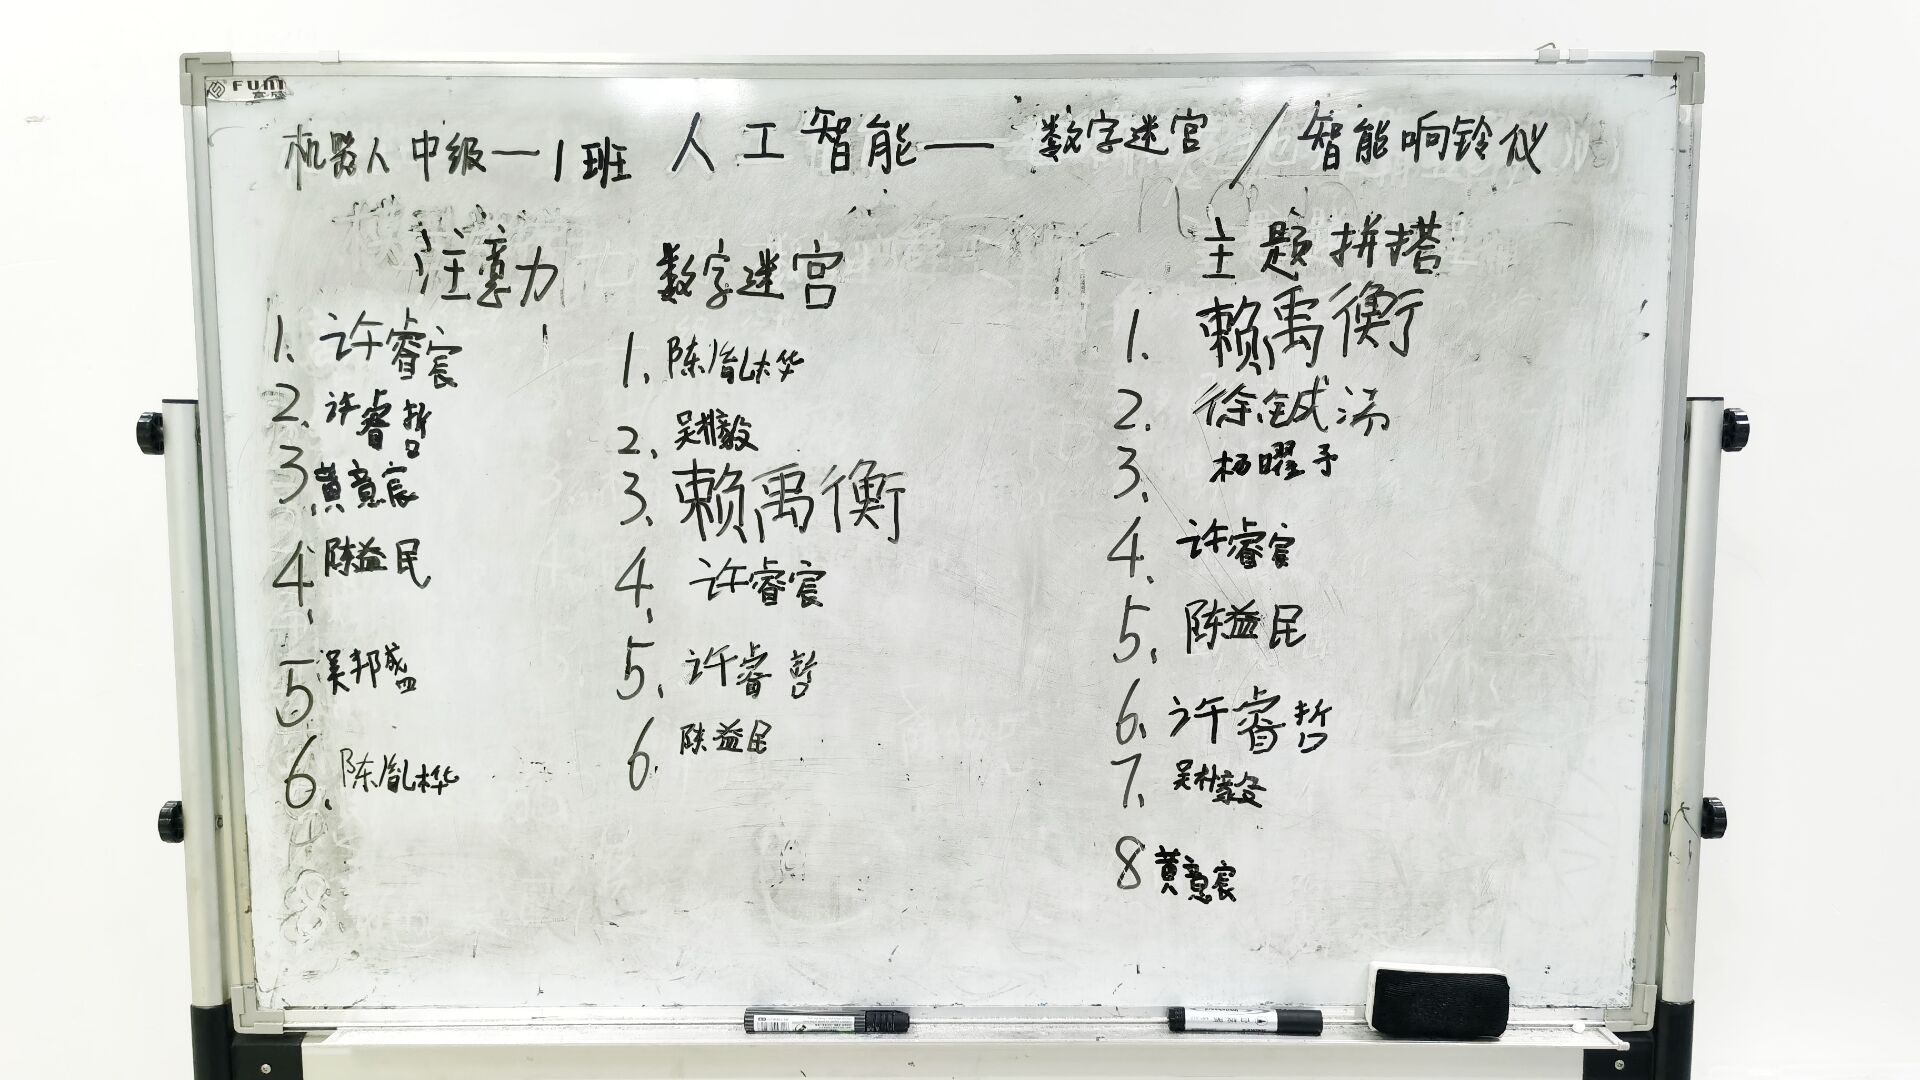 FUNI
机器人中级—1班 人工智能—数字迷宫/智能响铃仪
注意力
1. 许睿宸
2. 许睿哲
3. 黄意宸
4. 陈益民
5 吴邦盛
6. 陈胤桦
数字迷宫
1. 陈胤桦
2. 吴彬毅
3. 赖禹衡
4. 许睿宸
5. 许睿哲
6. 陈益民
主题拼搭
1. 赖禹衡
2. 徐铖
3. 杨曜予
4. 许睿宸
5. 陈益民
6. 许睿哲
7. 吴彬毅
8 黄意宸